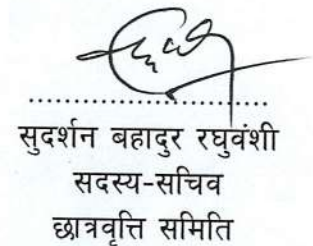 ..............................
सुदर्शन बहादुर रघुवंशी
सदस्य-सचिव
छात्रवृत्ति समिति